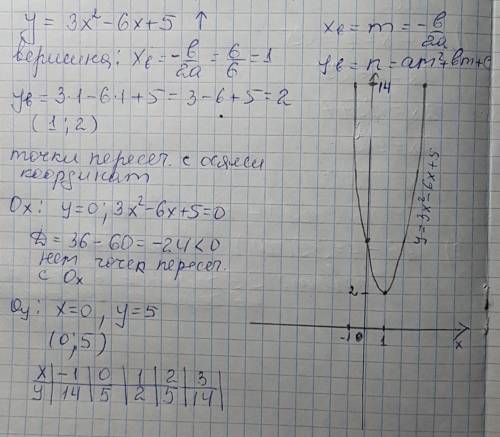 y = 3x² - 6x + 5 ↑
вершина: xв = -в/2a = 6/6 = 1
yв = 3·1 - 6·1 + 5 = 3 - 6 + 5 = 2
(1; 2)
точки пересеч. с осями
координат
Ox: y=0; 3x² - 6x + 5 = 0
D = 36 - 60 = -24 < 0
нет точек пересеч.
с Ox
Oy: x=0, y=5
(0; 5)
x | -1 | 0 | 1 | 2 | 3
y | 14 | 5 | 2 | 5 | 14
xв = m = -в/2a
yв = n = am² + вm + c
14
y = 3x² - 6x + 5
2
-1 0 1 x